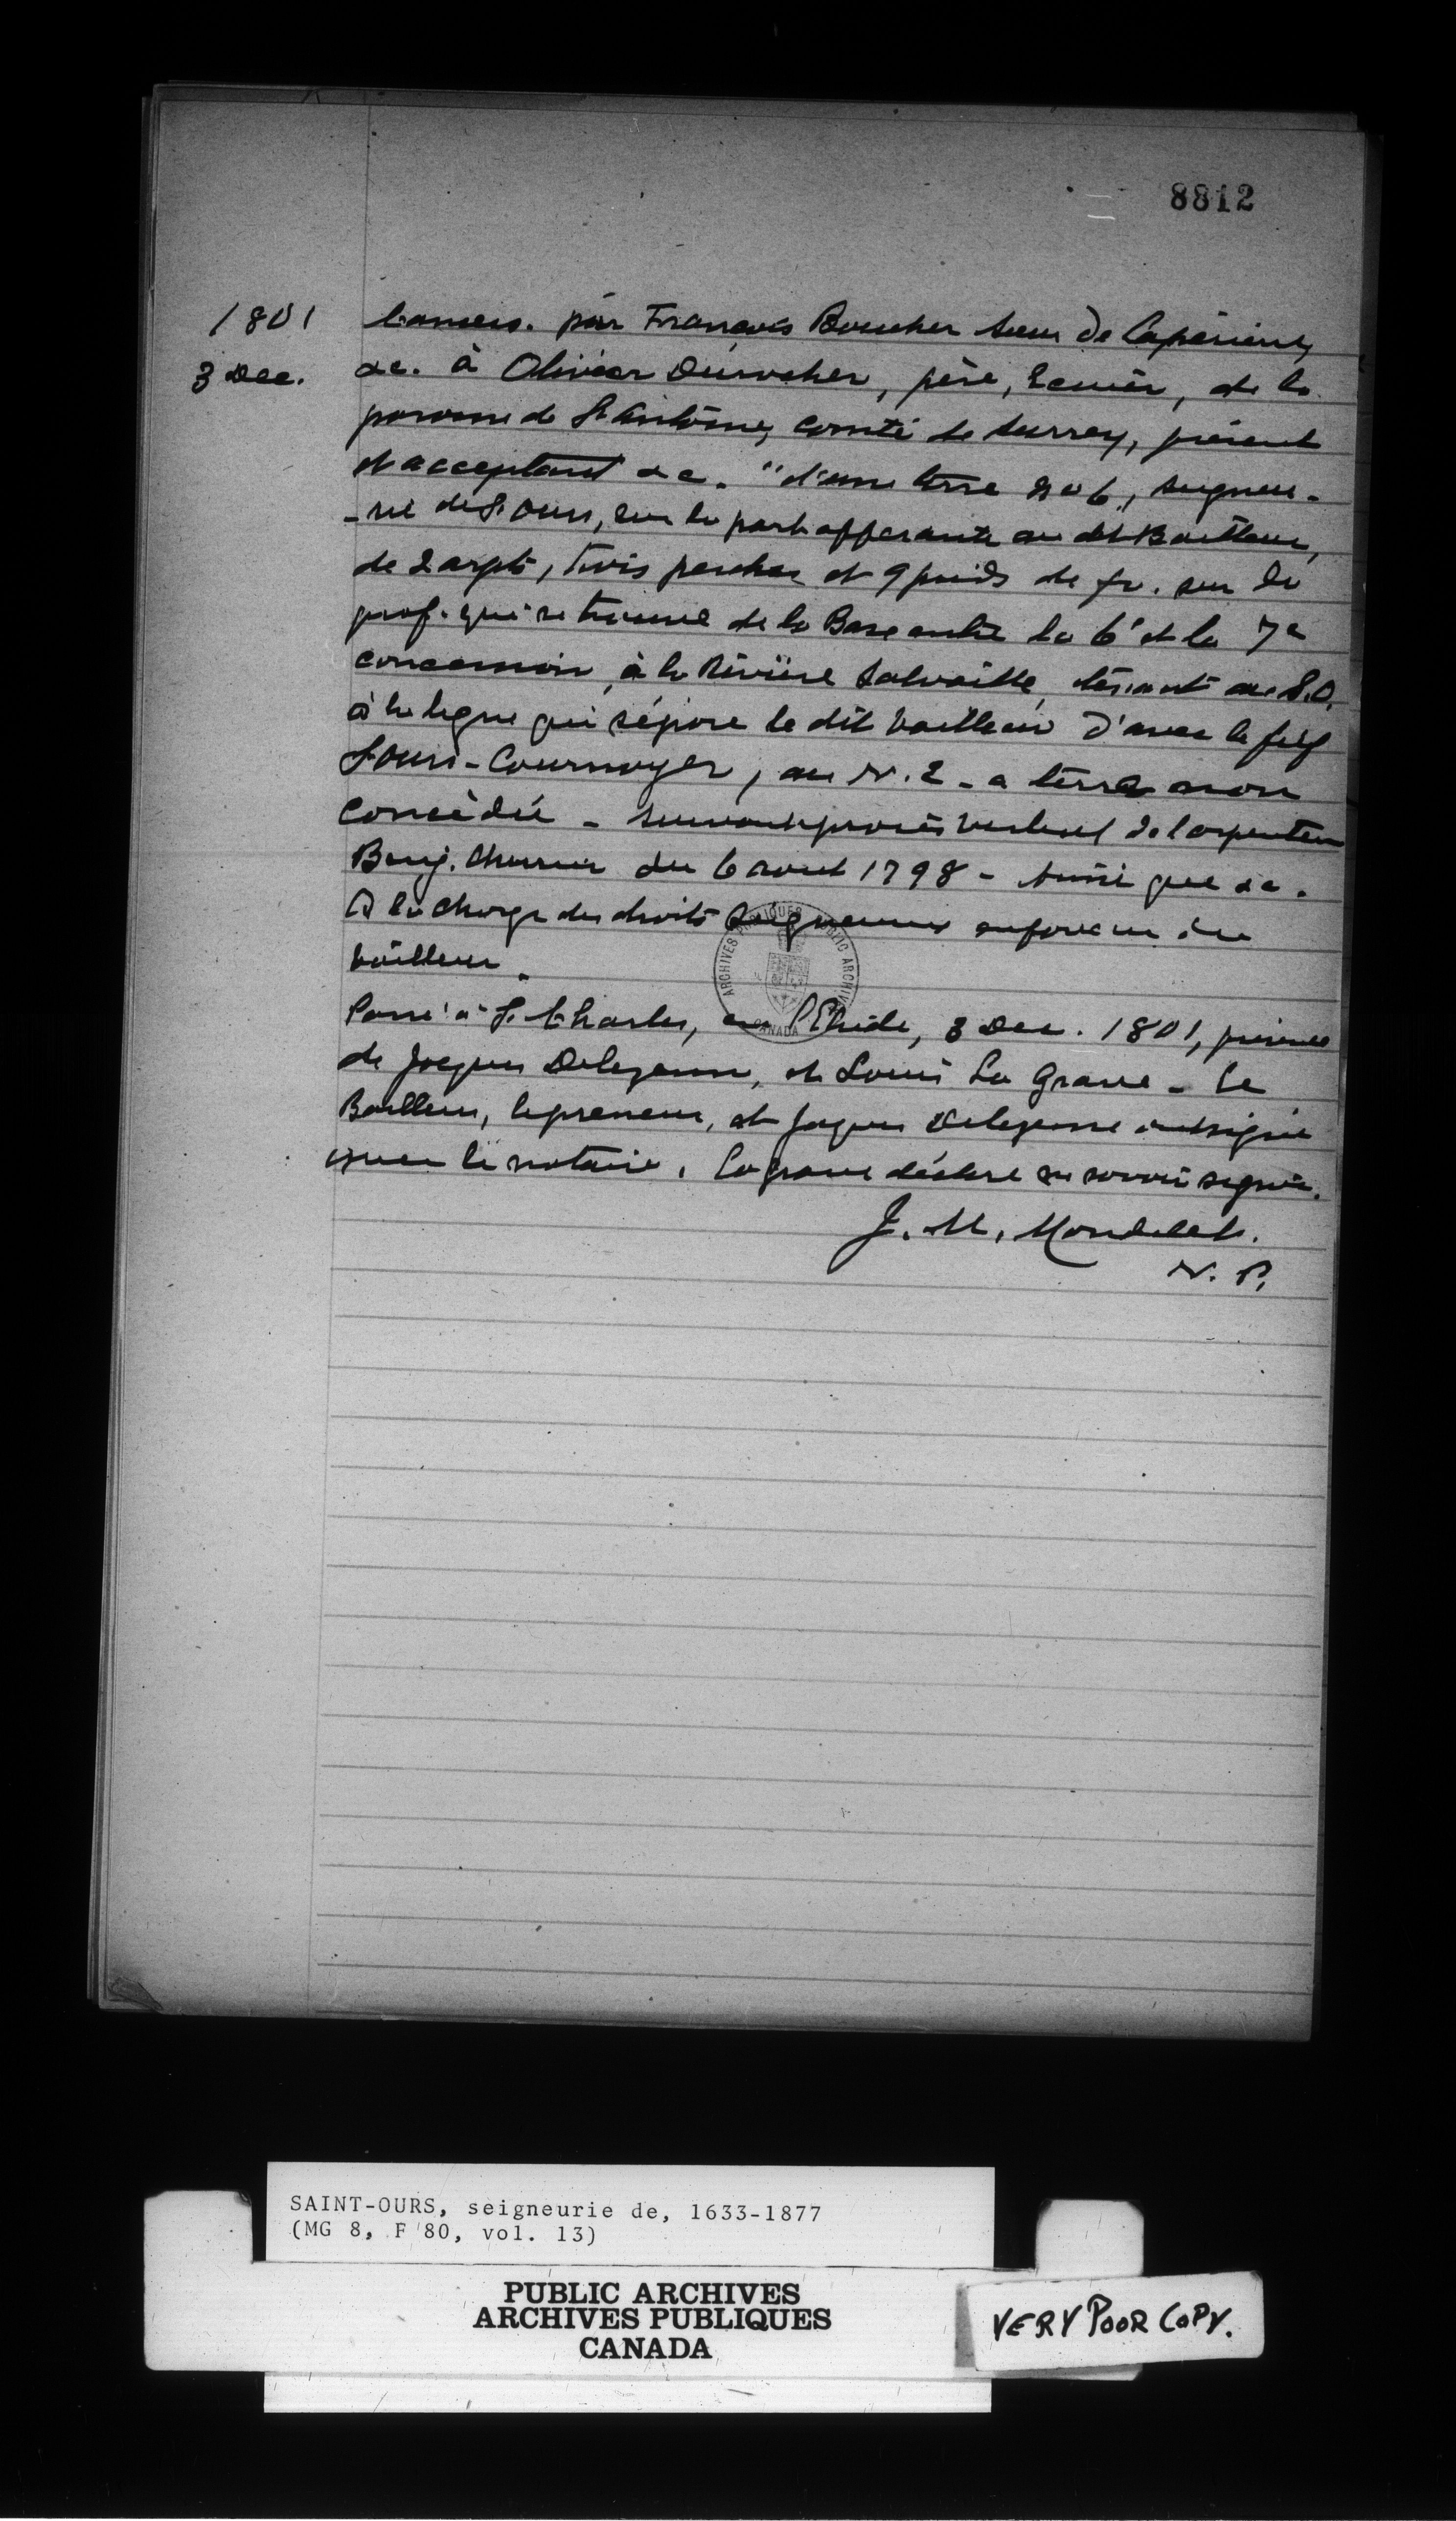 8812
1801
3 Dec.
Concess. par François Boucher Sieur de Lapérière,
&c. à Olivier Durocher, père, Ecuier, de la
paroisse de St Antoine, comté de Surrey, présent
et acceptant &c. "d'une terre No 6, seigneu-
-rie de St Ours, sur la part afferante au dit Bailleur,
de 2 arpts, trois perches et 9 pieds de fr. sur la
prof. qui se trouve de la Base entre la 6e et la 7e
concession, à la Rivière Salvaille, tenant au S.O.
à la ligne qui sépare le dit bailleur d'avec le fief
St Ours-Cournoyer, au N.E - a terre non
concédée - suivant procès verbal de l'arpenteur
Benj. du 6 aout 1798 - Ainsi que &c.
A la charge des droits Seigneuriaux en faveur du
bailleur.
Passé à St Charles, en l'Etude, 3 Dec. 1801, présence
de Jacques Delezenne, et Louis La Grave - Le
Bailleur, le preneur, et Jaques Delezenne ont signé
avec le notaire. Lagrave déclare ne savoir signer.
J. M. Mondelet.
N. P.
ARCHIVES PUBLIQUES PUBLIC ARCHIVES
CANADA
SAINT-OURS, seigneurie de, 1633-1877
(MG 8, F 80, vol. 13)
PUBLIC ARCHIVES
ARCHIVES PUBLIQUES
CANADA
VERY POOR COPY.